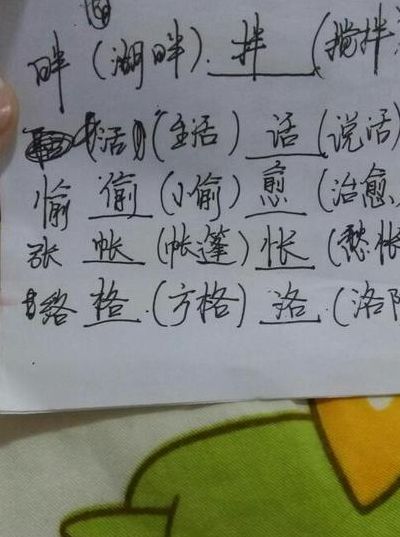 畔 (湖畔). 拌 (搅拌)
活 (生活) 话 (说话)
愉 偷 (小偷) 愈 (治愈)
张 帐 (帐篷) 怅 (愁怅
络 格 (方格) 洛 (洛阳